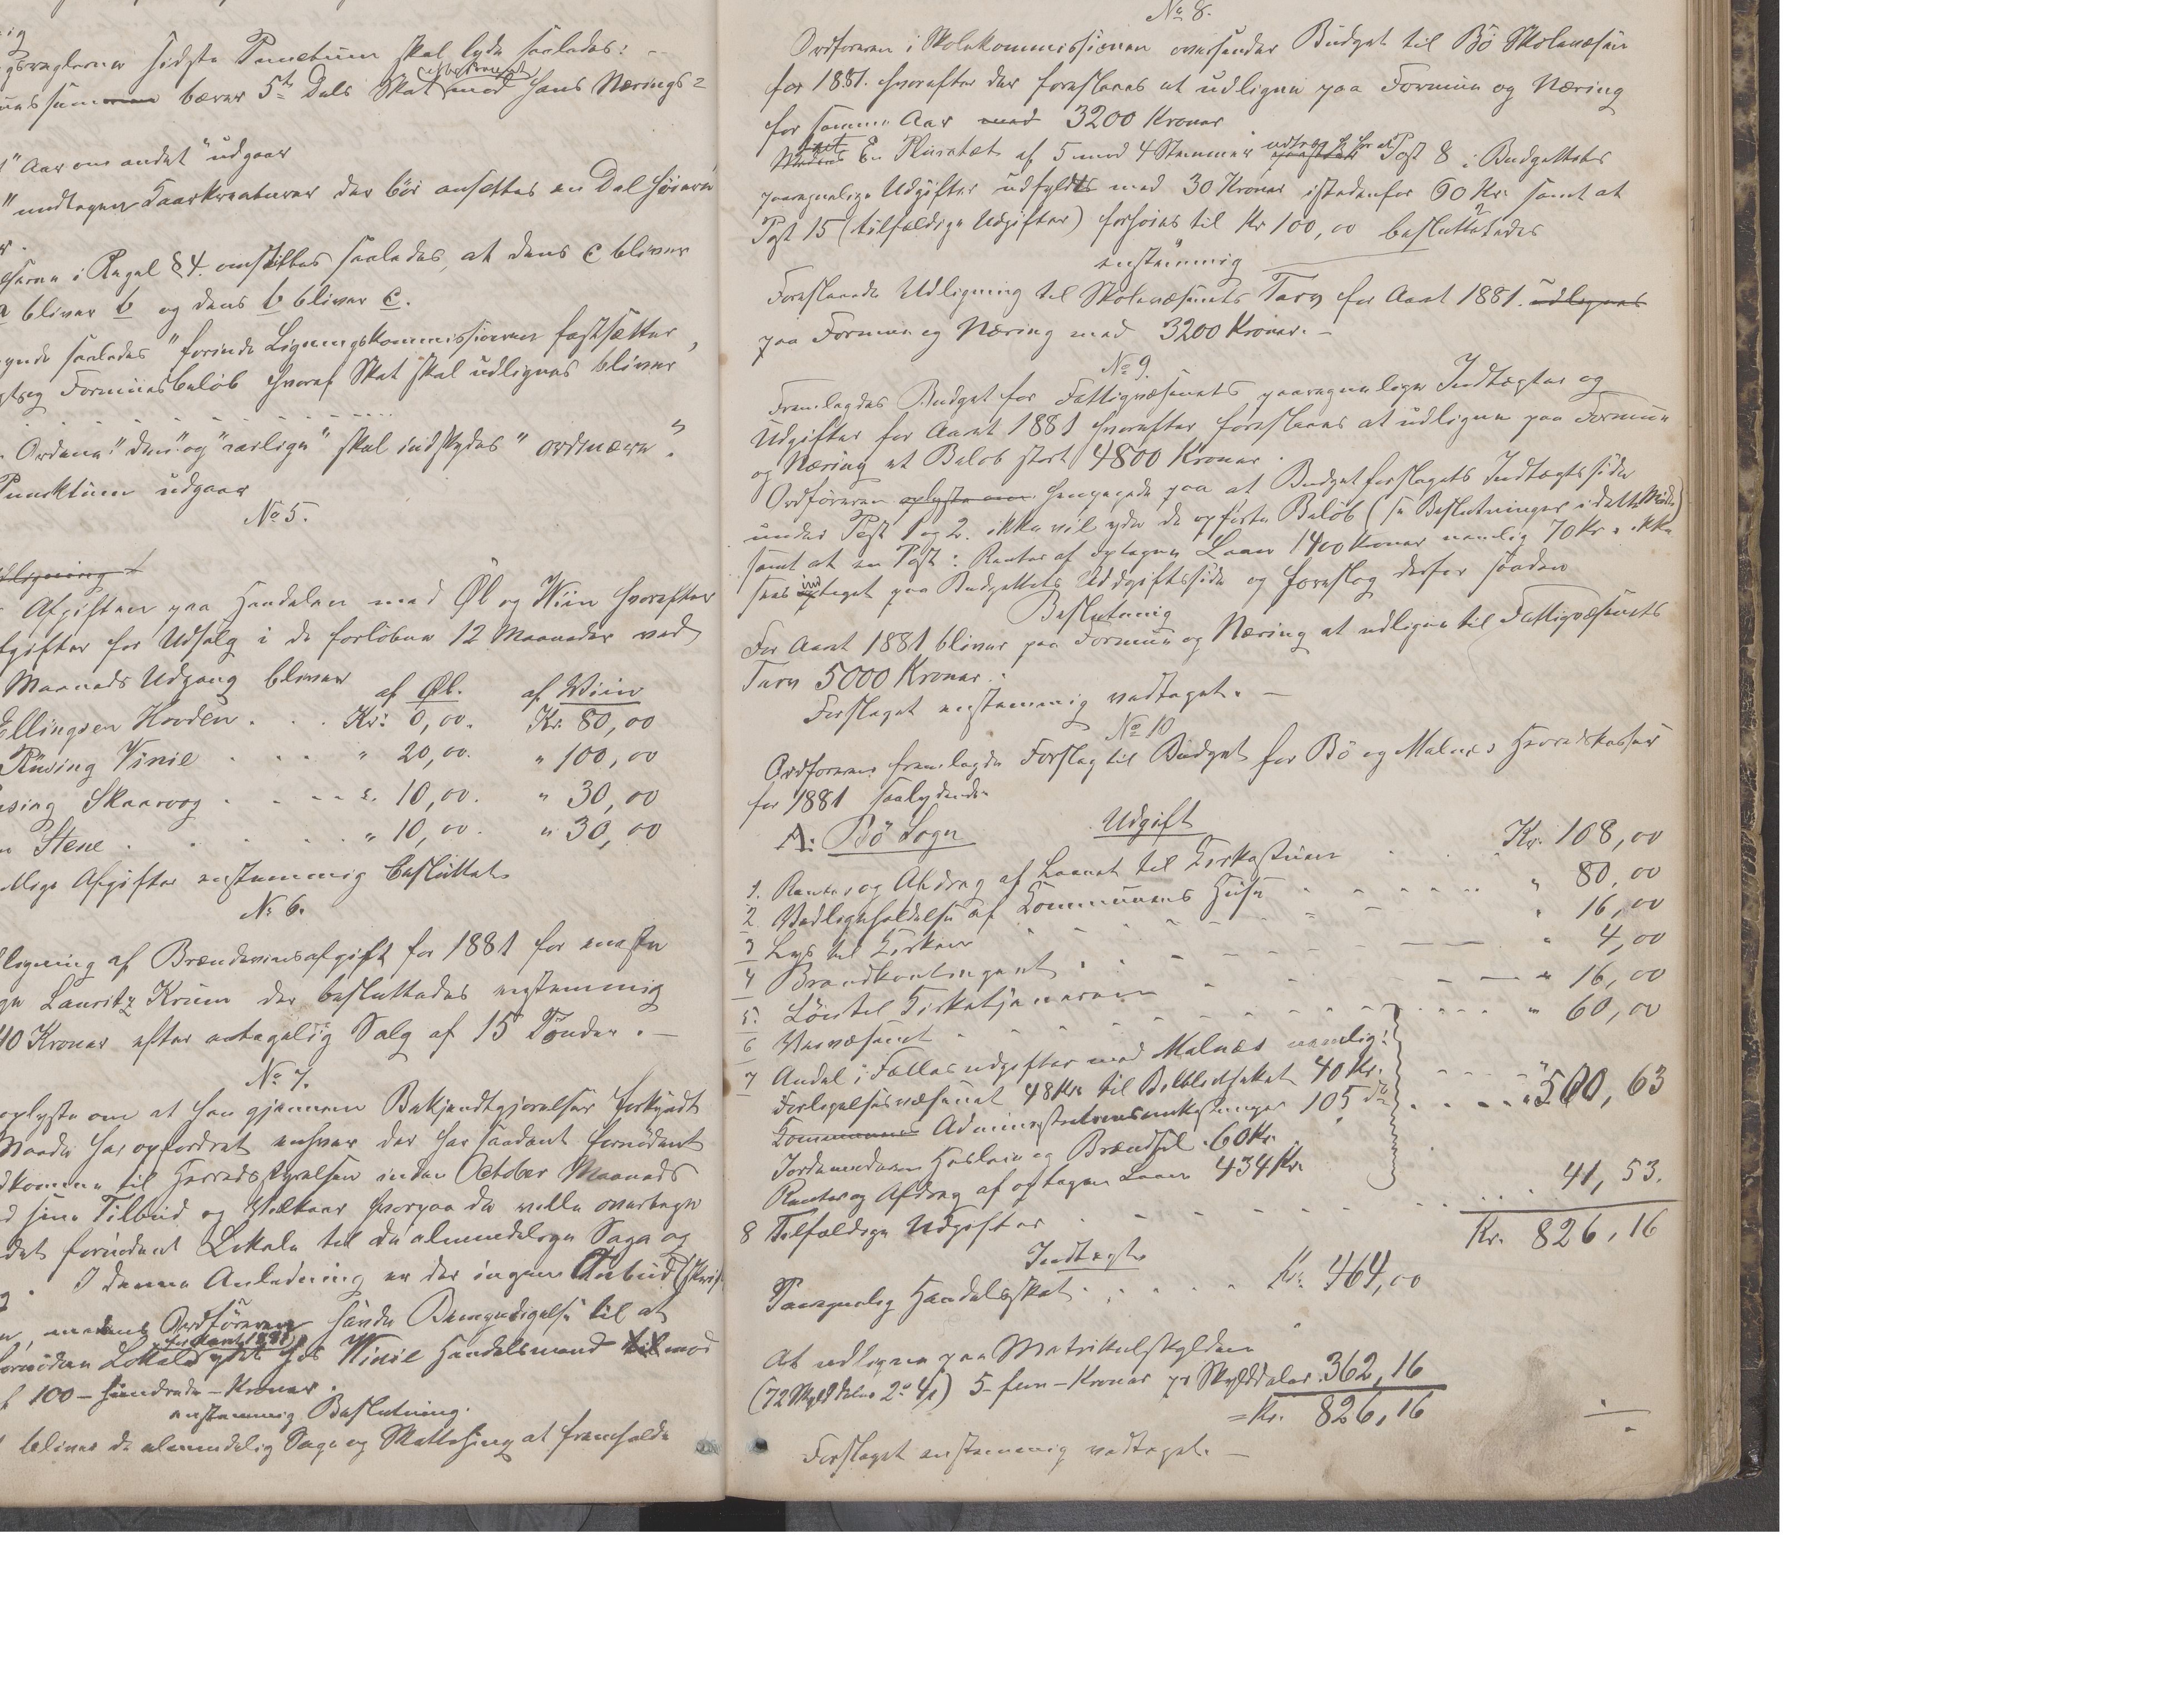 sidste Punctum skal lyde saaledes: –
bærer 5te Dels Skat mod hans Nærings=
" Aar om andet " udgaar
" undtagen Kaarkreaturer der bör ansettes en Del höiere
i Regel § 4. omskiftes saaledes, at dens c bliver
a bliver b og dens b bliver c.
saaledes " forinde Ligningskommissionen fastsætter
Formuesbeløb hvoraf Skat skal udlignes bliver "
Ordene " den " og " aarlige " skal indskydes " ordinære ".
Puncktum udgaar
No 5.
Afgiften paa Handelen med Øl og Viin hvorefter
for Udsalg i de forløbne 12 Maaneder ved
Maaneds Udgang bliver
af Øl. af Viin
Ellingsen Hovden . . . Kr: 0,00. Kr. 80,00
Rüsing Vinie . . . " 20,00. " 100,00
Skaarvog . . . " 10,00. " 30,00
Stene . . . " 10,00. " 30,00
Afgifter enstemmig besluttet
No 6.
ligning af Brændevinsafgift for 1881 for eneste
Lauritz Krüm der besluttedes enstemmig
40 Kroner efter antagelig Salg af 15 Tønder. –
No 7.
oplyste om at han gjennem Bekjendtgjørelser forkyndt
har opfordret enhver der har saadant fornødent
til Herredsstyrelsen inden October Maaneds
sine Tilbud og Vilkaar hvorpaa de ville overtage
fornødent Lokale til de almindelige Sage og
I denne Anledning er der ingen Anbud
Ordføreren havde Bemyndigelse til at
for Aaret 1881
Lokale hos Vinie Handelsmand til mod
100 – hundrede – Kroner.
enstemmig Beslutning.
bliver de almindelig Sage og Skattething at fremholde
No 8.
Ordføreren i Skolekommissionen oversender Budget til Bö Skolevæsen
for 1881. hvorefter der foreslaaes at udligne paa Formue og Næring
for samme Aar med 3200 Kroner
En Pluralitet af 5 mod 4 Stemmer Post 8 i Budgettets
paaregnelige Udgifter udfyldtes med 30 Kroner istedenfor 60 Kr. samt at
Post 15 (tilfældige Udgifter) forhøies til Kr 100,00 besluttedes
enstemmig
Foreslaaede Udligning til Skolevæsenets Tarv for Aaret 1881. udlignes
paa Formue og Næring med 3200 Kroner. –
No 9.
Fremlagdes Budget for Fattigvæsenets paaregnelige Indtægter og
Udgifter for Aaret 1881 hvorefter foreslaaes at udligne paa Formue
og Næring et Beløb stort 4800 Kroner.
Ordføreren oplyste om henpegede paa at Budgetforslagets Indtægtsside
under Post 1 og 2. ikke vil yde de opførte Beløb (se Beslutninger i dette Møde)
samt at en Post: Renter af optagen Laan 1400 Kroner nemlig 70 Kr. ikke
sees indtaget paa Budgettets Uddgiftsside og foreslog derfor saadan
Beslutning
For Aaret 1881 bliver paa Formue og Næring at udligne til Fattigvæsenets
Tarv 5000 Kroner.
Forslaget enstemmig vedtaget. –
No 10
Ordføreren fremlagde Forslag til Budget for Bö og Malnes Herredskasser
for 1881 saalydende
A: Bö Sogn Udgift
1. Renter og Afdrag af Laanet til Kirkestuen . . Kr. 108,00
2 Vedligeholdelse af Kommunens Huse . . . " 80,00
3 Lys til Kirken . . . " 16,00
4 Brandkontingent . . . " 4,00
5. Løn til Kirketjeneren . . . " 16,00
6 Veivæsenet . . . " 60,00
7 Andel i Fællesudgifter med Malnes nemlig:
Forligelsesvæsenet 48 Kr. til Bibliotheket 40 Kr. . . . " 500,63
Kommunens Administrationsomkostninger 105 do
Jordemoderen Husleie og Brændsel 60 Kr.
Renter og Afdrag af optagen Laan 434 Kr.
8 Tilfældige Udgifter . . . 41,53.
Kr. 826,16
Indtægt
Paaregnelig Handelsskat . . . . Kr. 464,00
At udligne paa Matrikulskylden
(72 Skylddaler 2 4/) 5 – fem – Kroner pr Skylddaler 362,16
= Kr. 826,16
Forslaget enstemmig vedtaget. –